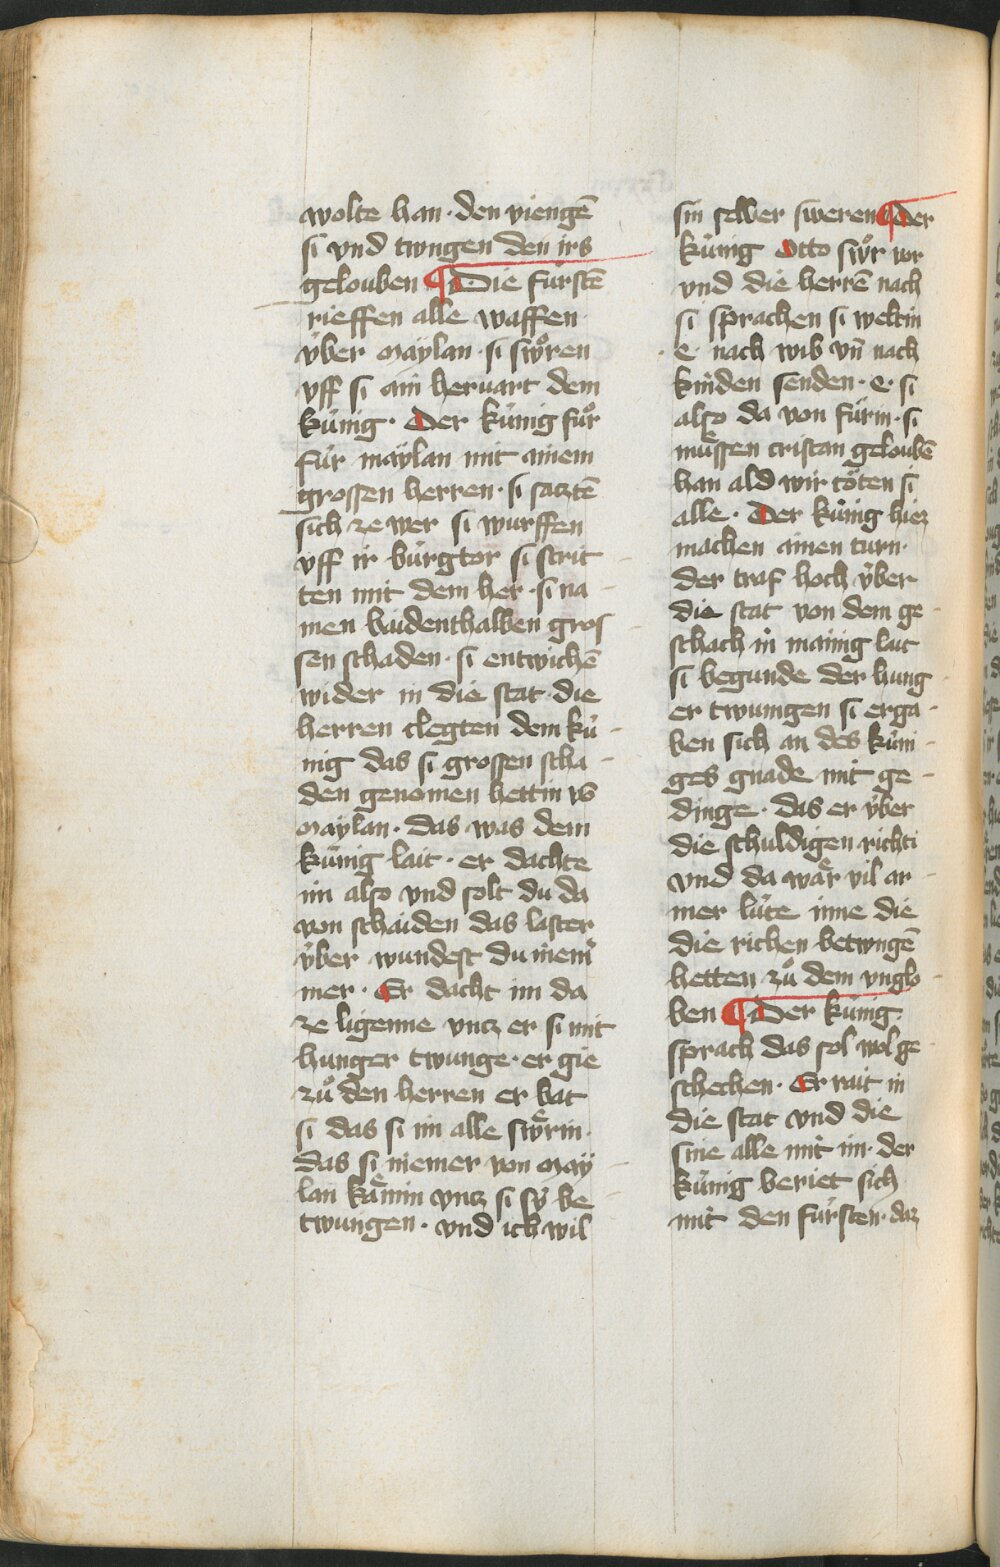 wolte han · den viengē
si vnd twngen den irs
gelouben ¶ Die fúrstē
rieffen alle waffen
v́ber maÿlan · si swůren
vff si ain heruart dem
kúnig · Der kúnig fůr
fúr maÿlan mit ainem
grossen herren · si satztē
sich ze wer si wurffen
vff ir búrgtor si strit
ten mit dem her · si na
men baidenthalben gros
sen schaden · si entwichē
wider in die stat · die
herren clegten dem kú
nig das si grossen scha
den genomen hettin vō
maÿlan · das was dem
kúnig lait · er dachte
im also vnd solt du da
von schaiden das laster
v́ber wundest du niem̄
mer · Er dacht im da
ze ligenne vntz er si mit
hunger twunge · er gie
zů den herren er bat
si das si im alle swůrin ·
das si niemer von maÿ
lan kämin vntz si sÿ be
twungen · vnd ich wil
sin selber sweren ¶ Der
kúnig Otto swůr vor
vnd die herrē nach
si sprachen si weltin
e · nach wib vn̄ nach
kinden senden · e · si
also da von fúrin · si
můssen cristan geloubē
han ald wir töten si
alle · Der kúnig hiez
machen ainen turn ·
der traf hoch v́ber
die stat von dem ge
schach in mainig lait
si begunde der hung
er twuingen si erga
ben sich an des kúni
ges gnade mit ge
dinge · das er v́ber
die schuldigen richti
vnd da wär vil ar
mer lúte inne die
die richen betwngē
hetten zů dem vnglo
ben ¶ Der kúnig
sprach das sol wol ge
schechen · Er rait in
die stat vnd die
sine alle mit im · der
kúnig beriet sich
mit den fúrsten · daz